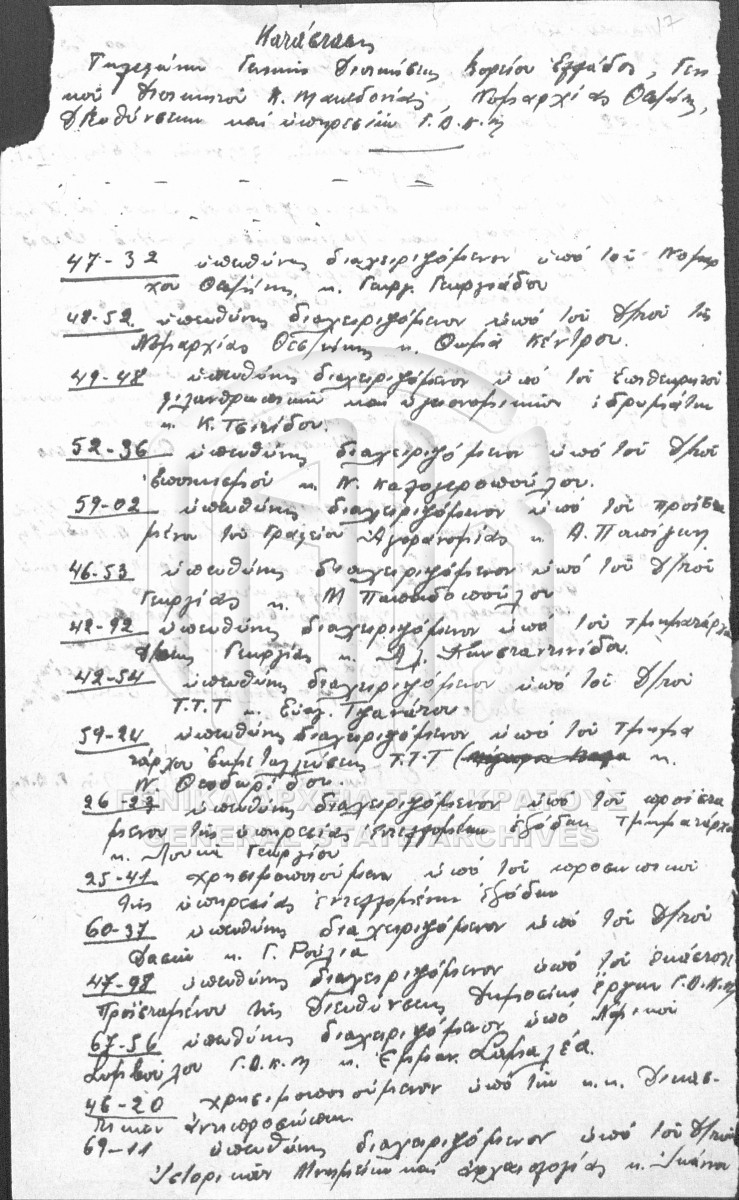 17
Κατάστασις
Τηλεφώνων Γενικής Διοικήσεως Βορείου Ελλάδος, Γενι
κού Διοικητού Κ. Μακεδονίας, Νομαρχίας Θεσ/νίκης,
Δ/σεων και υπηρεσιών Γ.Δ.Κ.Μ
47-32 υπευθύνως διαχειριζόμενον υπό του Νομάρ
χου Θεσ/νίκης κ. Γεωργ. Γεωργιάδου
48-52 υπευθύνως διαχειριζόμενον υπό του Δ/τού της
Νομαρχίας Θεσ/νίκης κ. Θωμά Κέντρου.
49-48 υπευθύνως διαχειριζόμενον υπό του Επιθεωρητού
φιλανθρωπικών και υγειονομικών ιδρυμάτων
κ. Κ. Τσιτίδου.
52-36 υπευθύνως διαχειριζόμενον υπό του Δ/τού
Εποικισμού κ. Ν. Καλογεροπούλου.
59-02 υπευθύνως διαχειριζόμενον υπό του προϊστα
μένου του Γραφείου Αγορανομίας κ. Α. Παπίγκη
46-53 υπευθύνως διαχειριζόμενον υπό του Δ/τού
Γεωργίας κ. Μ Παπαδοπούλου
42-92 υπευθύνως διαχειριζόμενον υπό του τμηματάρχου
Δ/σεως Γεωργίας κ. Κωνσταντινίδου.
42-54 υπευθύνως διαχειριζόμενον υπό του Δ/τού
Τ.Τ.Τ κ. Ευαγ. Τζανάτου
59-24 υπευθύνως διαχειριζόμενον υπό του τμημα
τάρχου Εκμεταλλεύσεως Τ.Τ.Τ κ.
Ν. Θεοδωρίδου.
26-23 υπευθύνως διαχειριζόμενον υπό του προϊστα
μένου της υπηρεσίας Εντελλομένων εξόδων τμηματάρχου
κ. Λουκά Γεωργίου
25-41 χρησιμοποιούμενον υπό του προσωπικού
της υπηρεσίας εντελλομένων εξόδων
60-37 υπευθύνως διαχειριζόμενον υπό του Δ/τού
Δασών κ. Γ. Ρούλια
47-98 υπευθύνως διαχειριζόμενον υπό του εκάστοτε
Προϊσταμένου της Διευθύνσεως Δημοσίων Έργων Γ.Δ.Κ.Μ
67-56 υπευθύνως διαχειριζόμενον υπό Νομικού
Συμβούλου Γ.Δ.Κ.Μ κ. Εμμαν. Σαμαλέα.
46-20 χρησιμοποιούμενον υπό των κ.κ. Δικασ-
τικών Αντιπροσώπων
69-11 υπευθύνως διαχειριζόμενον υπό του Δ/τού
Ιστορικών Μνημείων και αρχαιολογίας κ. Ιωάννου
ΓΕΝΙΚΑ ΑΡΧΕΙΑ ΤΟΥ ΚΡΑΤΟΥΣ
GENERAL STATE ARCHIVES